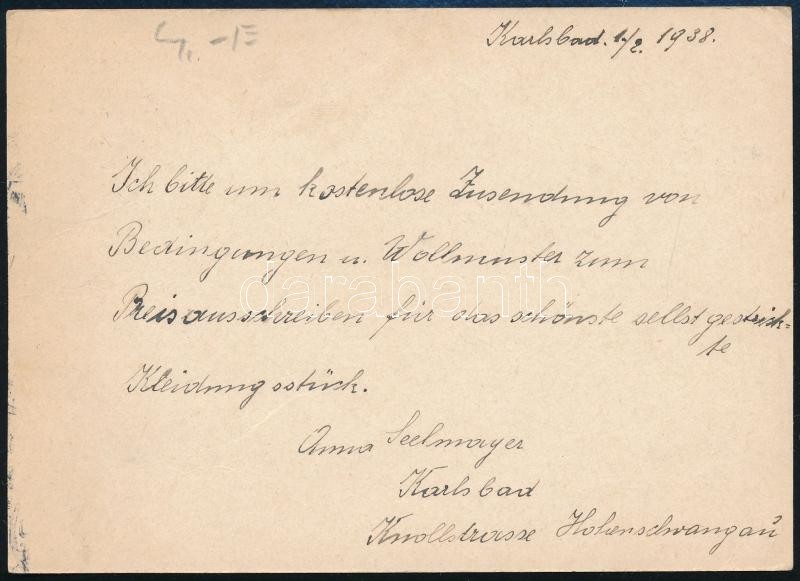 Karlsbad. 1/2. 1938.
Ich bitte um kostenlose Zusendung von
Bedingungen u. Wollmuster zum
Preisausschreiben für das schönste selbst gestrick=
te
Kleidungsstück.
Anna Seelmayer
Karlsbad
Knollstrasse Hohenschwangau
darabanth